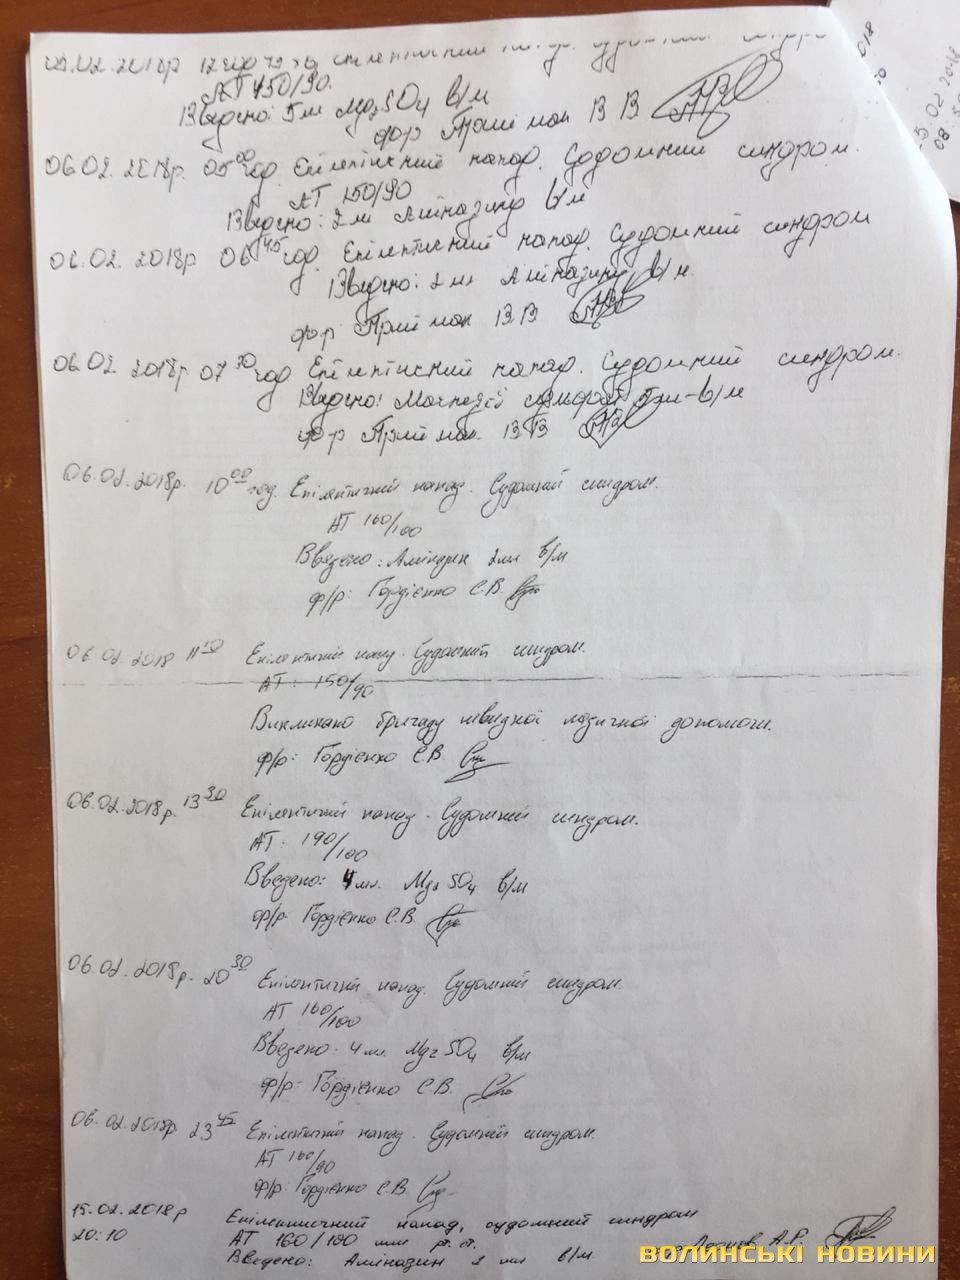 .02.2018р
АТ 150/90.
Введено: 5 мл Mg2SO4 в/м
ф-р Приймак В В
06.02.2018р. 05 00 год. Епілептичний напад. Судомний синдром.
АТ 150/90
Введено: 2 мл Аміназину в/м
06.02. 2018р 06 45 год. Епілептичний напад. Судомний синдром
Введено: 2 мл Аміназину в/м.
ф-р Приймак В В
06.02 2018р 07 30 год Епілептичний напад. Судомний синдром.
Введено: Магнезії сульфат 5мл - в/м
ф-р Приймак. В В
06.02.2018р. 10 00 год. Епілептичний напад. Судомний синдром.
АТ 160/100
Введено: Аміназин 2мл в/м
ф/р: Гордієнко С.В.
06.02.2018 11 10 Епілептичний напад. Судомний синдром.
АТ: 150/90
Викликано бригаду швидкої медичної допомоги.
ф/р: Гордієнко С.В.
06.02.2018р. 13 30 Епілептичний напад. Судомний синдром.
АТ: 190/100
Введено: 4 мл. Mg2 SO4 в/м
ф/р: Гордієнко С.В.
06.02.2018р. 20 30 Епілептичний напад. Судомний синдром.
АТ 160/100
Введено: 4 мл. Mg2 SO4 в/м
ф/р: Гордієнко С.В.
06.02.2018р 23 45 Епілептичний напад. Судомний синдром.
АТ 160/90
ф/р: Гордієнко С.В.
15.02.2018р Епілептичний напад, судомний синдром
20:10 АТ 160/100 мм рт. ст. А.Р.
Введено: Аміназин 2 мл в/м
ВОЛИНСЬКІ НОВИНИ